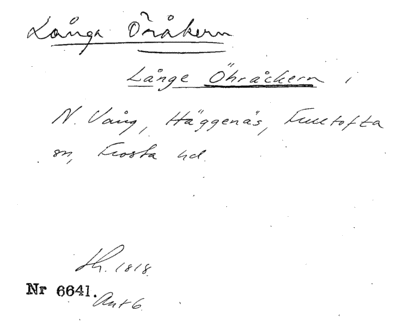 Långa Öråkern
Långe Öhråckern i
N. Vång, Häggenäs, Fulltofta
sn, Frosta hd.
Sk. 1818.
Nr 6641.
Akt 6